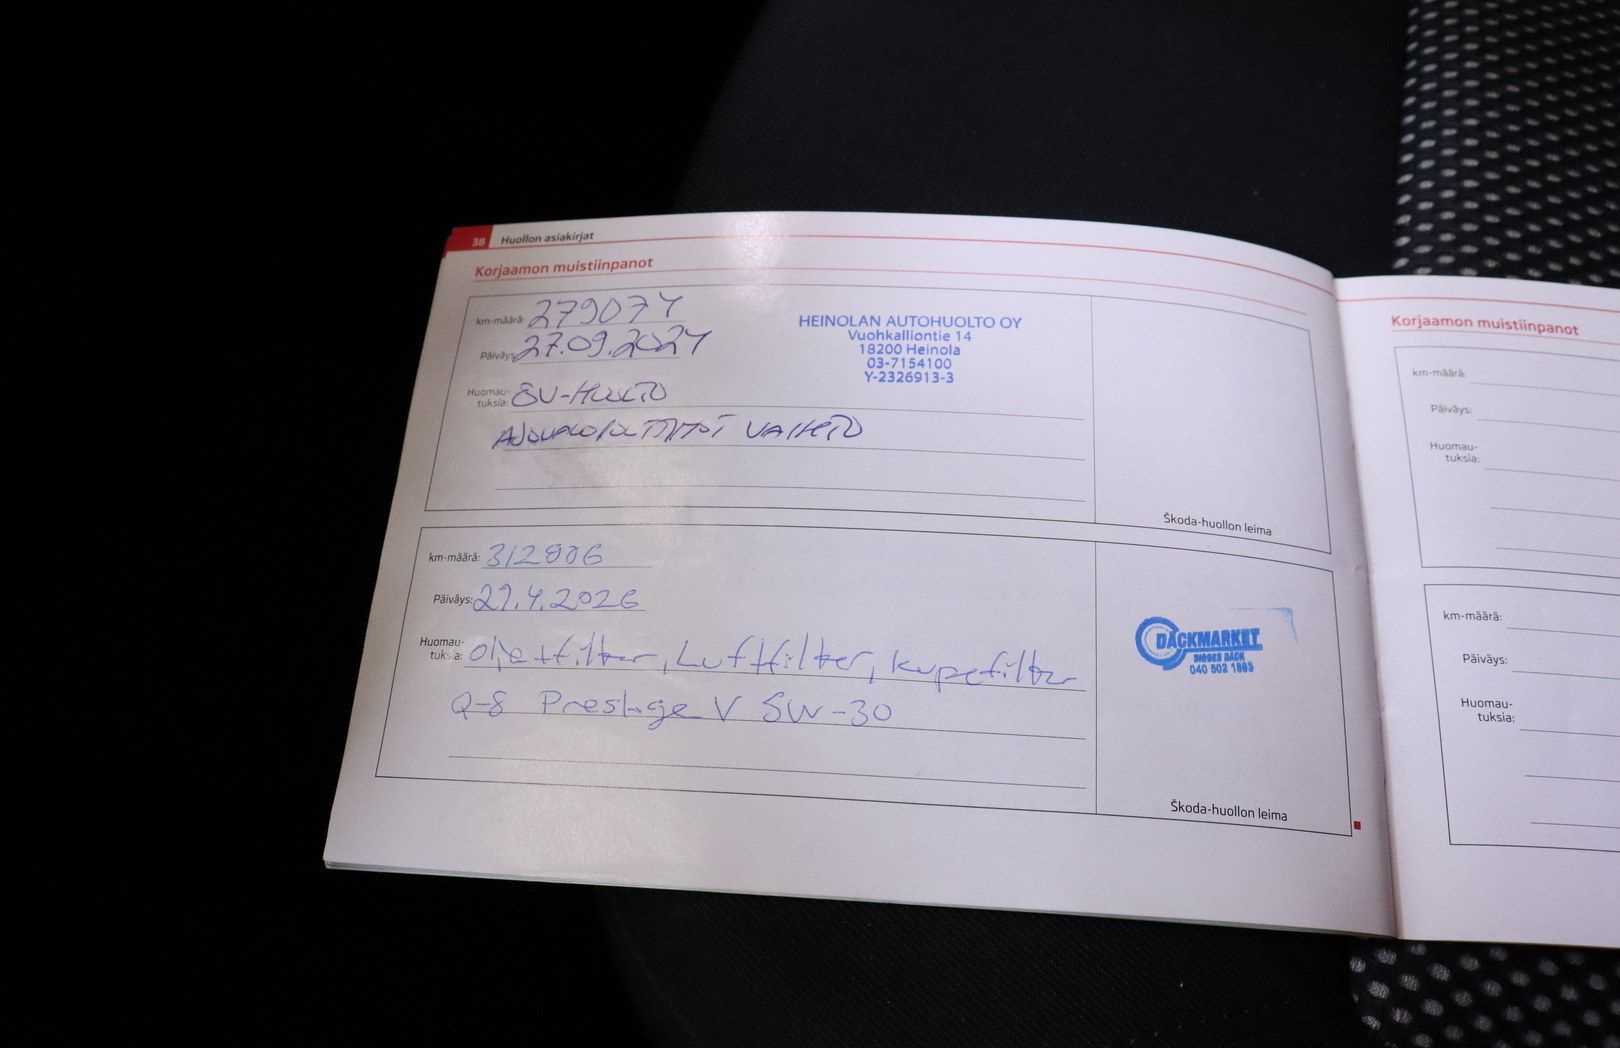 38 Huollon asiakirjat
Korjaamon muistiinpanot
km-määrä: 279074
Päiväys: 27.09.2024
Huomau-
tuksia: ÖV-HUOLTO
VAIHTO
HEINOLAN AUTOHUOLTO OY
Vuohkalliontie 14
18200 Heinola
03-7154100
Y-2326913-3
Škoda-huollon leima
km-määrä: 312806
Päiväys: 29.4.2026
Huomau-
tuksia: oljefilter, Luftfilter, kupefilter
Q-8 Prestige V 5W-30
DÄCKMARKET
DÄCK
040 502 1893
Škoda-huollon leima
Korjaamon muistiinpanot
km-määrä:
Päiväys:
Huomau-
tuksia:
km-määrä:
Päiväys:
Huomau-
tuksia: